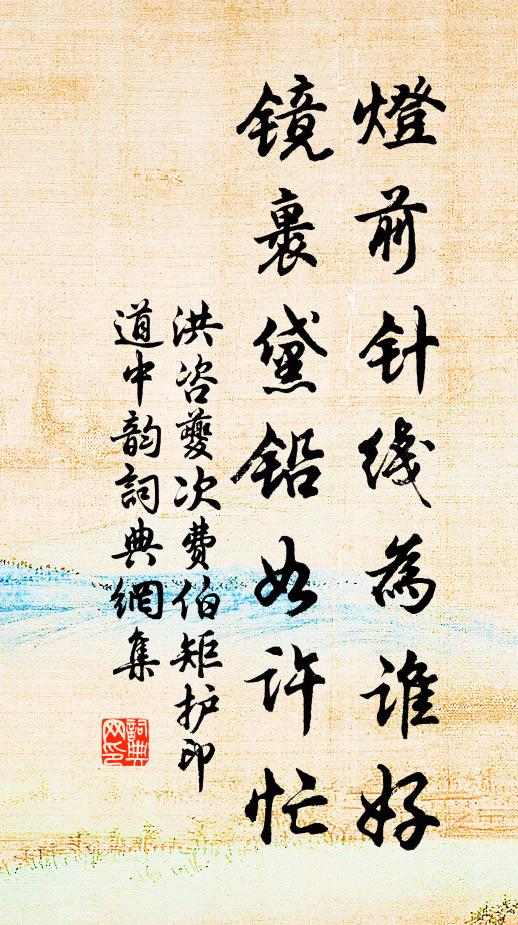 燈前针线為誰好
镜裏黛铅如许忙
洪咨夔次费伯矩护印
道中韵詞典網集
詞典网印